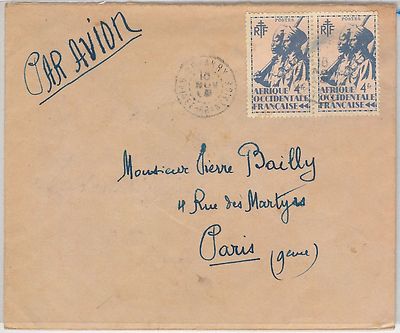 PAR AVION
10
NOV
POSTES
RF
4F
AFRIQUE
OCCIDENTALE
FRANÇAISE
POSTES
RF
4F
AFRIQUE
OCCIDENTALE
FRANÇAISE
Monsieur Pierre Bailly
4 Rue des Martyrs
Paris (9eme)